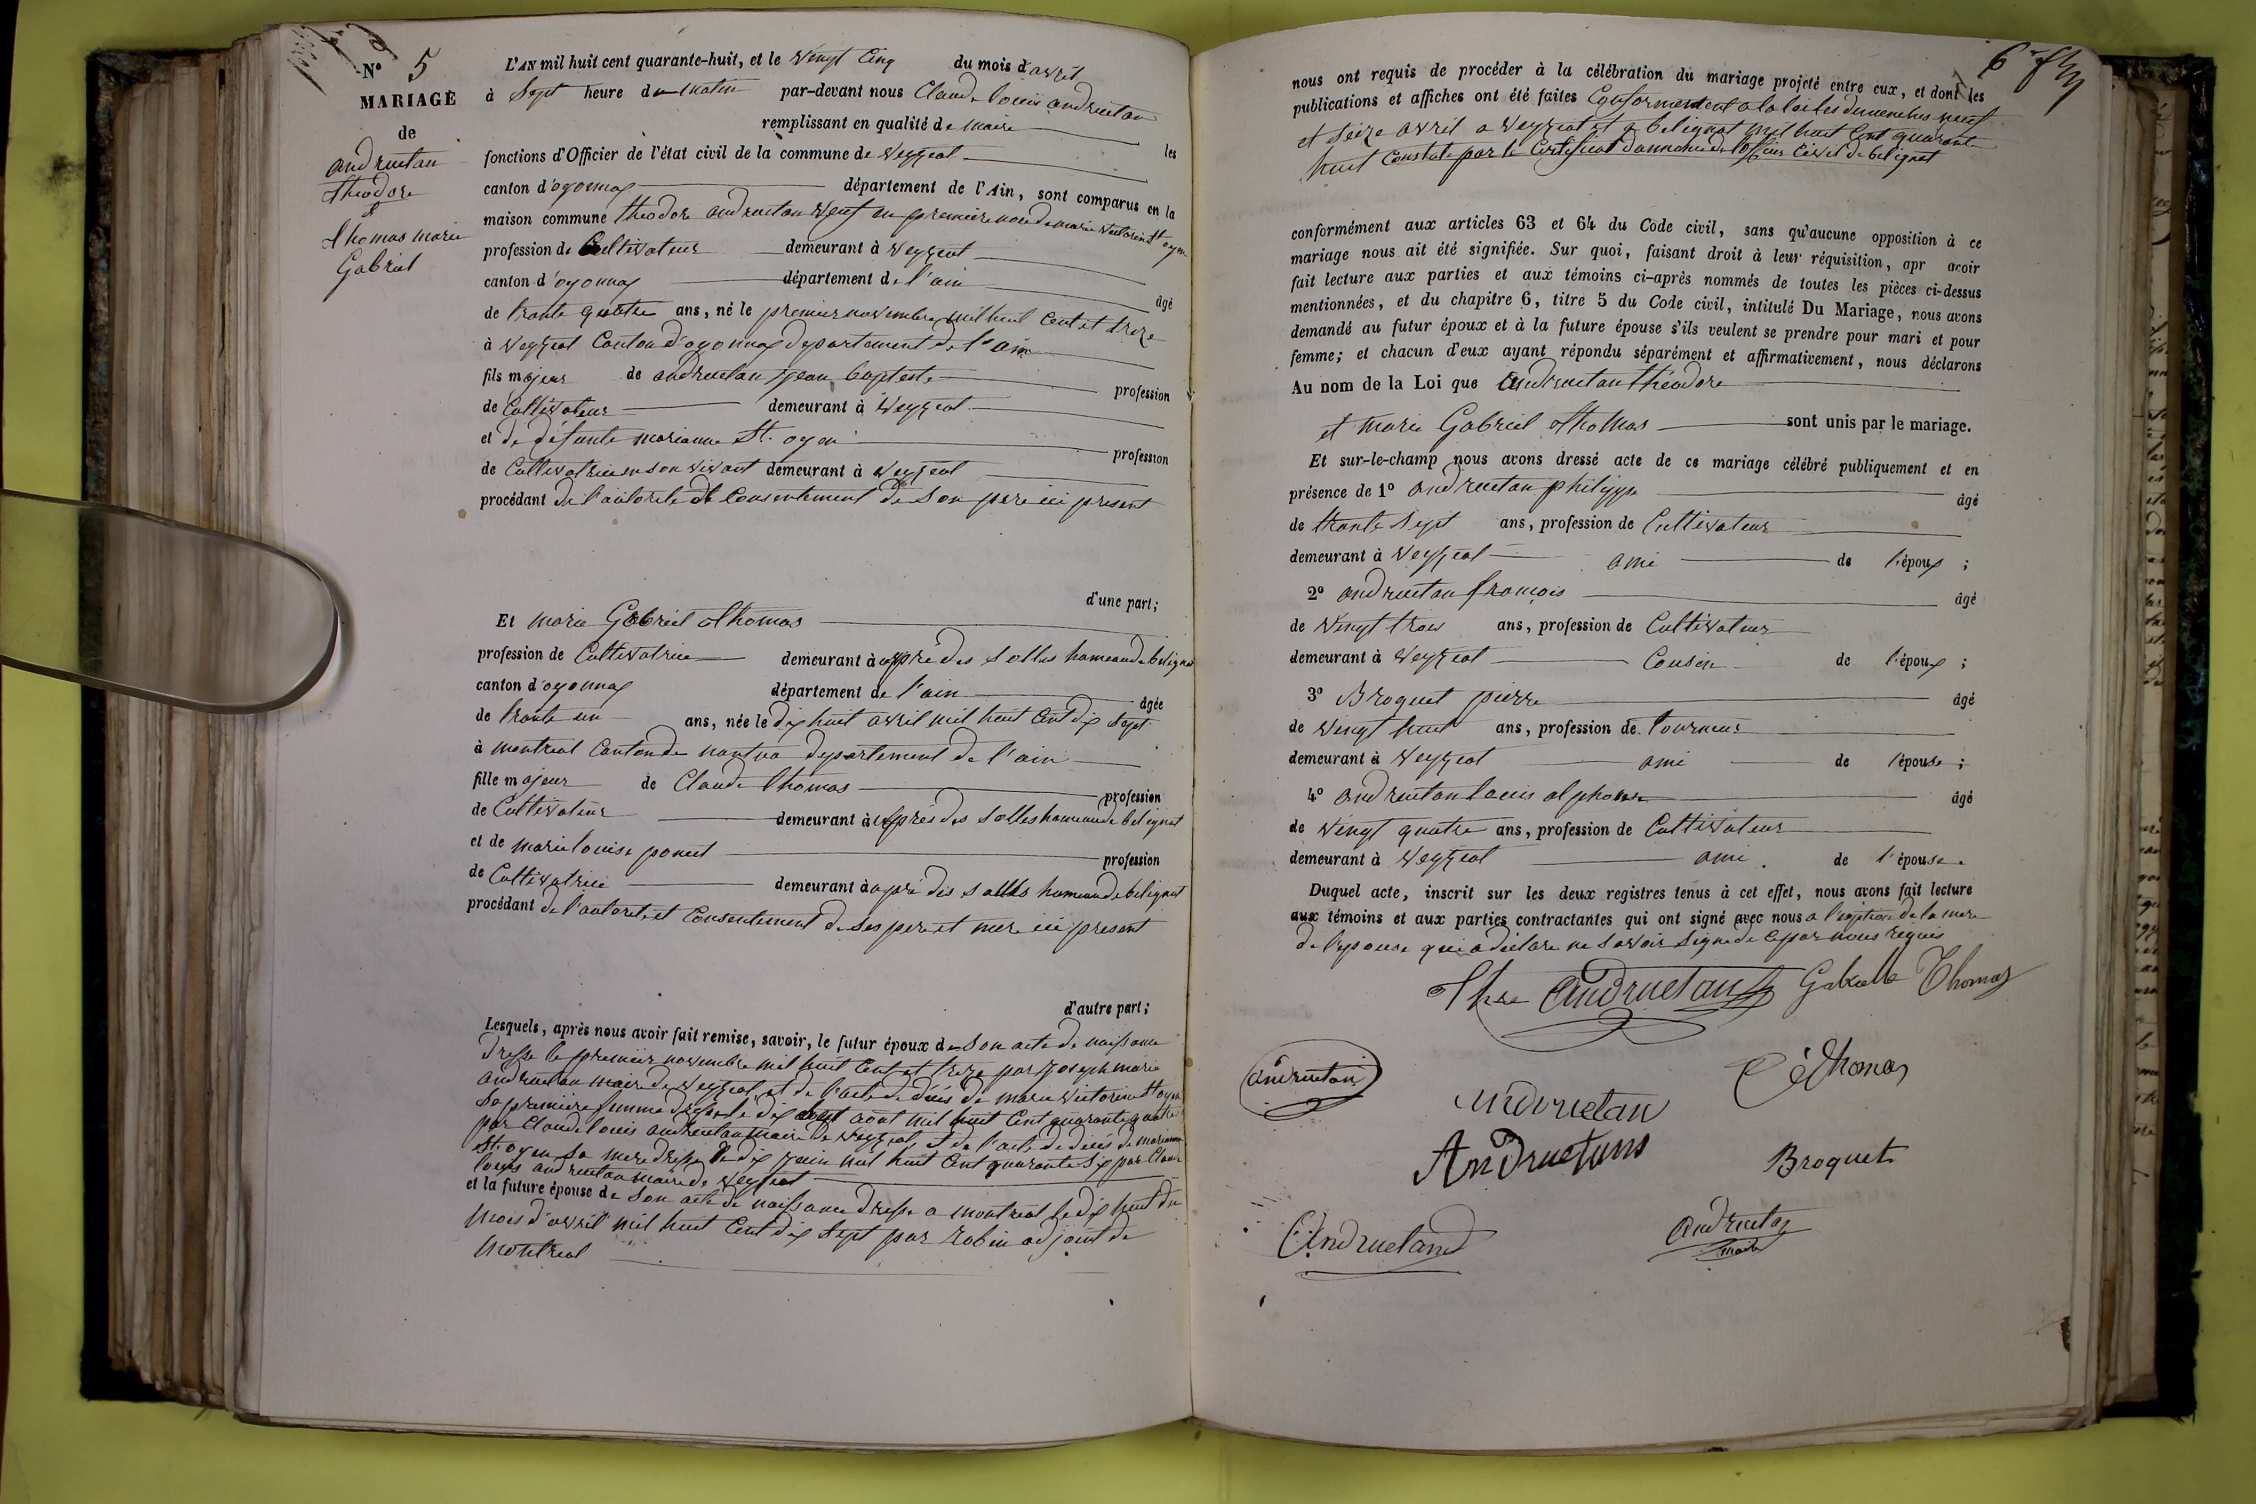 N° 5
MARIAGE
de
andruetan
theodore
&
thomas marie
Gabriel
L'AN mil huit cent quarante-huit, et le vingt cinq du mois d'avril
à sept heure du matin par-devant nous Claude louis andruetan
remplissant en qualité de maire les
fonctions d'Officier de l'état civil de la commune de veyziat
canton d'oyonnax département de l'Ain, sont comparus en la
maison commune theodore andruetan veuf en premiere noce de marie victorine St oyen
profession de Cultivateur demeurant à veyziat
canton d'oyonnax département de l'ain âgé
de trante quatre ans, né le premier novembre mil huit cent et treze
à veyziat Canton d'oyonnax departement de l'ain
fils majeur de andruetan jean baptiste profession
de Cultivateur demeurant à veyziat
et de défunte marianne St. oyen profession
de Cultivatrice en son vivant demeurant à veyziat
procédant de l'autorite et consentement de son pere ici present
d'une part;
Et marie Gabriel thomas
profession de Cultivatrice demeurant à apré des solles hameau de belignat
canton d'oyonnax département de l'ain âgée
de trante un ans, née le dix huit avril mil huit cent dix sept
à montreal Canton de nantua departement de l'ain
fille majeur de Claude thomas profession
de Cultivateur demeurant à après des solles hameau de belignat
et de marie louise poncet profession
de Cultivatrice demeurant à apré des solles hameau de belignat
procédant de l'autorite et Consentement de ses pere et mere ici present
d'autre part;
Lesquels, après nous avoir fait remise, savoir, le futur époux de son acte de naissance
dresse le premier novembre mil huit cent et treze par joseph marie
andruetan maire de veyziat et de l'acte de décés de marie victorine St oyen
sa premiere femme dressé le dix août mil huit cent quarante quatre
par Claude louis andruetan maire de veyziat, et de l'acte de décés de marianne
St. oyen sa mere dresse le dix juin mil huit cent quarante six par Claude
louis andruetan maire de veyziat
et la future épouse de son acte de naissance dresse a montreal le dix huit du
mois d'avril mil huit cent dix sept par robin adjoint de
montreal
6
nous ont requis de procéder à la célébration du mariage projeté entre eux, et dont les
publications et affiches ont été faites Conformement a la loi les dimenches neuf
et seize avril a veyziat et a belignat mil huit cent quarante
huit constate par le certificat d'annonce de l'officier civil de belignat
conformément aux articles 63 et 64 du Code civil, sans qu'aucune opposition à ce
mariage nous ait été signifiée. Sur quoi, faisant droit à leur réquisition, apr avoir
fait lecture aux parties et aux témoins ci-après nommés de toutes les pièces ci-dessus
mentionnées, et du chapitre 6, titre 5 du Code civil, intitulé Du Mariage, nous avons
demandé au futur époux et à la future épouse s'ils veulent se prendre pour mari et pour
femme; et chacun d'eux ayant répondu séparément et affirmativement, nous déclarons
Au nom de la Loi que Andruetan théodore
et marie Gabriel thomas sont unis par le mariage.
Et sur-le-champ nous avons dressé acte de ce mariage célébré publiquement et en
présence de 1° andruetan philippe âgé
de trante sept ans, profession de Cultivateur
demeurant à veyziat ami de l'époux ;
2° andruetan françois âgé
de vingt trois ans, profession de Cultivateur
demeurant à veyziat Cousin de l'époux ;
3° Broquet pierre âgé
de vingt huit ans, profession de tourneur
demeurant à veyziat ami de l'épouse ;
4° andruetan louis alphonse âgé
de vingt quatre ans, profession de Cultivateur
demeurant à veyziat ami. de l'épouse.
Duquel acte, inscrit sur les deux registres tenus à cet effet, nous avons fait lecture
aux témoins et aux parties contractantes qui ont signé avec nous a l'exption de la mere
de l'epouse qui a déclare ne savoir signe de ce par nous requis
Thre Andruetan Gabrielle Thomas
andruetan
Cé Thomas
andruetan
Andruetans
Broquet
Andruetand
andruetan
maire